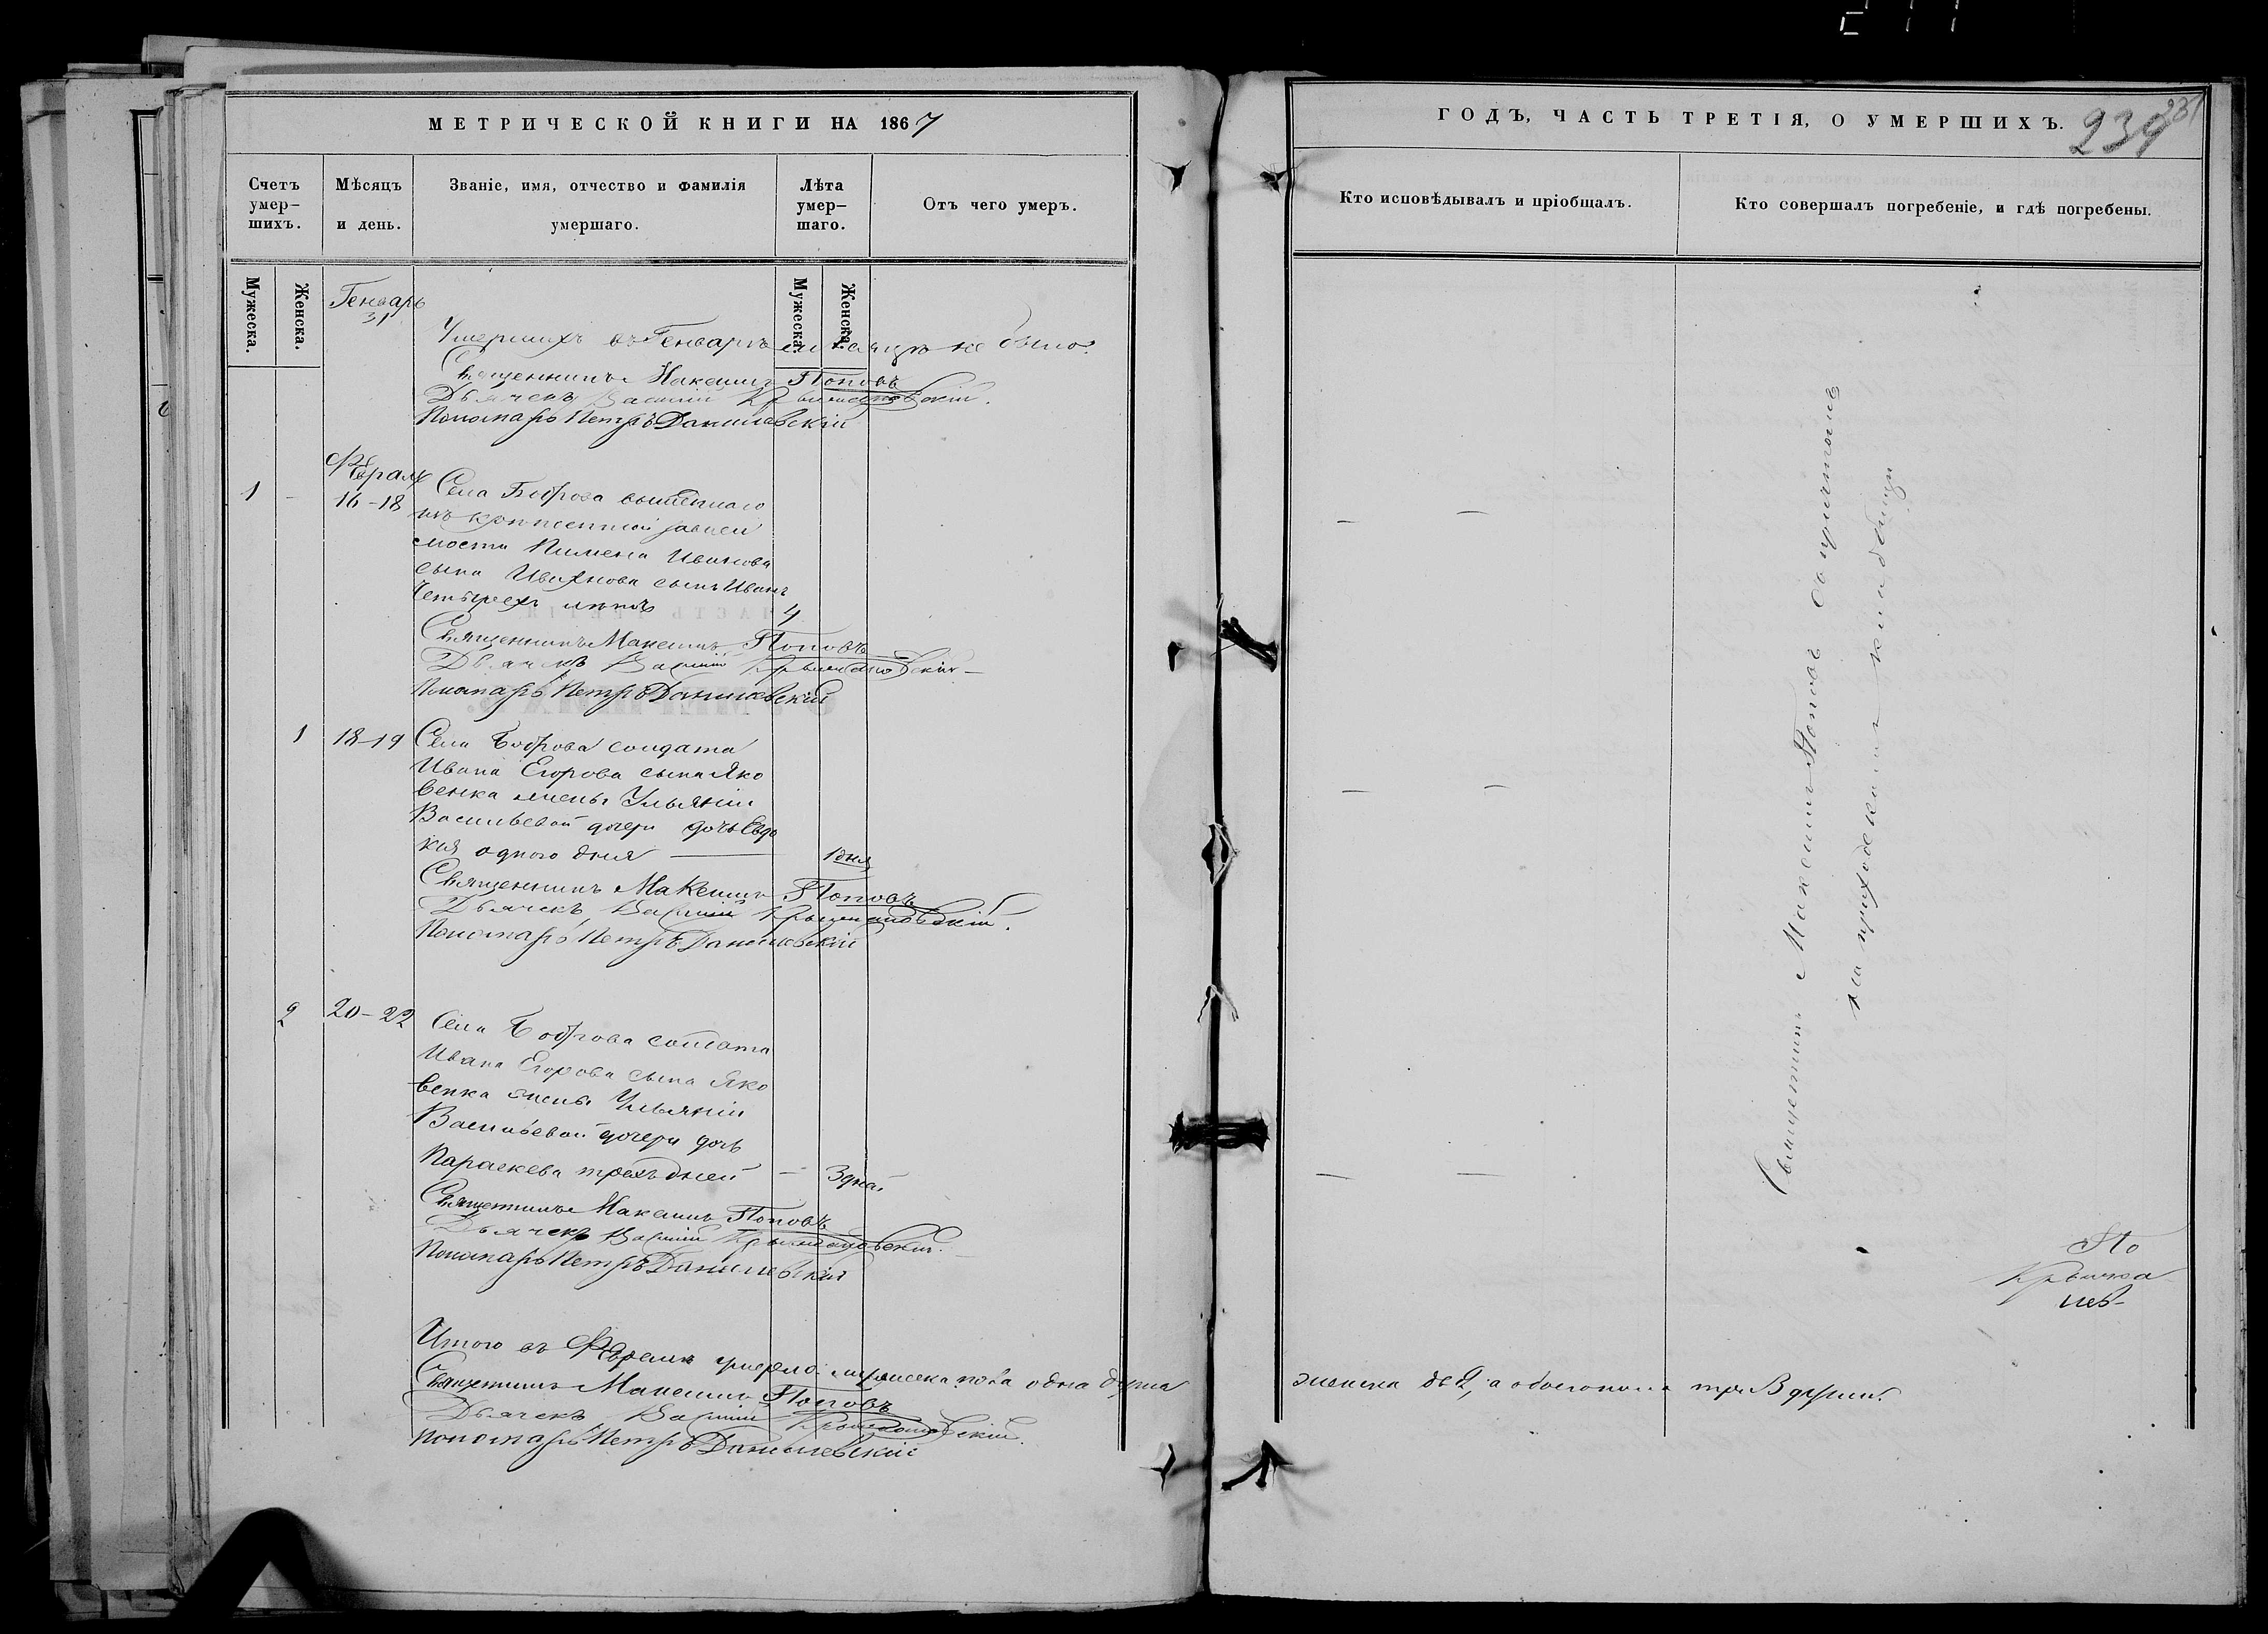 МЕТРИЧЕСКОЙ КНИГИ НА 1867
Счетъ умер-шихъ.
Мѣсяцъ и день.
Званіе, имя, отчество и фамилія умершаго.
Лѣта умер-шаго.
Отъ чего умеръ.
Мужеска.
Женска.
Мужеска.
Женска.
Генварь
31
Умершихъ въ Генварѣ месяцѣ не было.
Священникъ Максимъ Поповъ
Дьячекъ Василій
Пономарь Петръ Данилевскій
Февраля
1 - 16-18 Села Боброва вышедшаго
изъ крѣпостной зависи
мости Пимена Иванова
сына Иванова сынъ Иванъ
Четырехъ лѣтъ 4
Священникъ Максимъ Поповъ
Дьячекъ Василій
Пономарь Петръ Данилевскій
1 18-19 Села Боброва солдата
Ивана Егорова сына Яко
венка жены Ульяніи
Васильевой дочери дочь Евдо
кія одного дня 1 дня
Священникъ Максимъ Поповъ
Дьячекъ Василій
Пономарь Петръ Данилевскій
2 20-22 Села Боброва солдата
Ивана Егорова сына Яко
венка жены Ульяніи
Васильевой дочери дочь
Параскева трехъ дней - 3 дней
Священникъ Максимъ Поповъ
Дьячекъ Василій
Пономарь Петръ Данилевскій
Итого въ Февралѣ умерло мужеска пола одна душа
Священникъ Максимъ Поповъ
Дьячекъ Василій
Пономарь Петръ Данилевскій
ГОДЪ, ЧАСТЬ ТРЕТІЯ, О УМЕРШИХЪ.
231
Кто исповѣдывалъ и пріобщалъ.
Кто совершалъ погребеніе, и гдѣ погребены.
- -
- -
- -
Священникъ Максимъ Поповъ съ причтомъ
на приходскомъ кладбищѣ
По
женска двѣ 2, а обоего пола три 3 души.